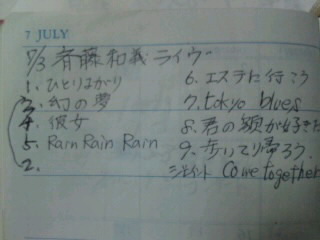 7 JULY
5/3 斉藤和義ライヴー
1. ひとりまがり
3. 幻の夢
4. 彼女
5. Rain Rain Rain
2.
6. エステに行こう
7. tokyo blues
8. 君の顔が好きだ
9. 歩いて帰ろう
ジョイント Come together